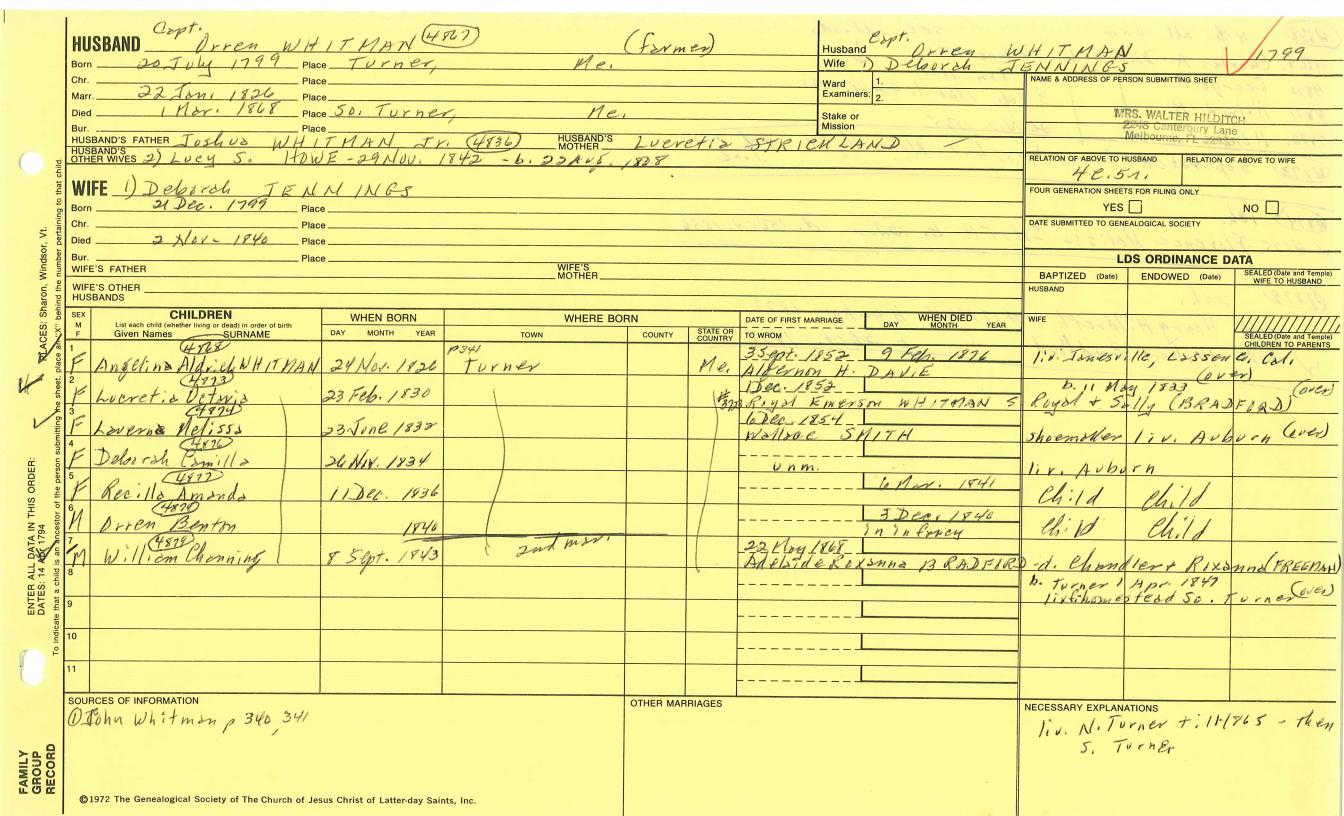 HUSBAND Capt. Orren WHITMAN 4867 (farmer)
Born 20 July 1799 Place Turner, Me.
Chr. Place
Marr. 22 Jan. 1826 Place
Died 1 Mar. 1868 Place So. Turner, Me.
Bur. Place
HUSBAND'S FATHER Joshua WHITMAN Jr. 4836 HUSBAND'S MOTHER Lucretia STRICKLAND
HUSBAND'S OTHER WIVES 2) Lucy S. HOWE - 29 Nov. 1842 - b. 22 Aug. 1828
Husband Capt. Orren WHITMAN 1799
Wife 1) Deborah JENNINGS
Ward Examiners: 1.
2.
Stake or Mission
NAME & ADDRESS OF PERSON SUBMITTING SHEET
MRS. WALTER HILDITCH
2245 Canterbury Lane
Melbourne, FL 32935
RELATION OF ABOVE TO HUSBAND RELATION OF ABOVE TO WIFE
4c.5r.
FOUR GENERATION SHEETS FOR FILING ONLY
YES NO
DATE SUBMITTED TO GENEALOGICAL SOCIETY
WIFE 1) Deborah JENNINGS
Born 21 Dec. 1799 Place
Chr. Place
Died 2 Nov- 1840 Place
Bur. Place
WIFE'S FATHER WIFE'S MOTHER
WIFE'S OTHER HUSBANDS
LDS ORDINANCE DATA
BAPTIZED (Date) ENDOWED (Date) SEALED (Date and Temple) WIFE TO HUSBAND
HUSBAND
WIFE
SEALED (Date and Temple) CHILDREN TO PARENTS
SEX M F CHILDREN List each child (whether living or dead) in order of birth Given Names SURNAME WHEN BORN DAY MONTH YEAR WHERE BORN TOWN COUNTY STATE OR COUNTRY DATE OF FIRST MARRIAGE TO WHOM WHEN DIED DAY MONTH YEAR
1 F 4868 Angelina Aldrich WHITMAN 24 Nov. 1826 p341 Turner Me. 3 Sept. 1852 9 Feb. 1876 Algernon H. DAVIE liv. Janesville, Lassen Co, Cal. (over)
2 F 4873 Lucretia Octavia 23 Feb. 1830 1 Dec. 1852 Royal Emerson WHITMAN S b. 11 May 1833 (over) Royal & Sally (BRADFORD)
3 F 4874 Laverna Melissa 23 June 1832 6 Dec. 1854 Wallace SMITH shoemaker liv. Auburn (over)
4 F 4876 Deborah Camilla 26 Nov. 1834 unm. liv. Auburn
5 F 4877 Recilla Amanda 11 Dec. 1836 6 Mar. 1841 Child Child
6 M 4878 Orren Benton 1840 3 Dec. 1840 in infancy Child Child
2nd mar.
7 M 4879 William Channing 8 Sept. 1843 22 May 1868 Adelaide Roxanna BRADFORD - d. Chandler & Rixanna (FREEMAN)
8 b. Turner 1 Apr. 1847 (over)
liv. homestead So. Turner
9
10
11
SOURCES OF INFORMATION
① John Whitman p 340, 341
OTHER MARRIAGES
NECESSARY EXPLANATIONS
liv. N. Turner till 1865 - then
S. Turner
©1972 The Genealogical Society of The Church of Jesus Christ of Latter-day Saints, Inc.
FAMILY GROUP RECORD
ENTER ALL DATA IN THIS ORDER:
DATES: 14 Apr 1794
PLACES: Sharon, Windsor, Vt.
To indicate that a child is an ancestor of the person submitting the sheet, place an "X" behind the number pertaining to that child.